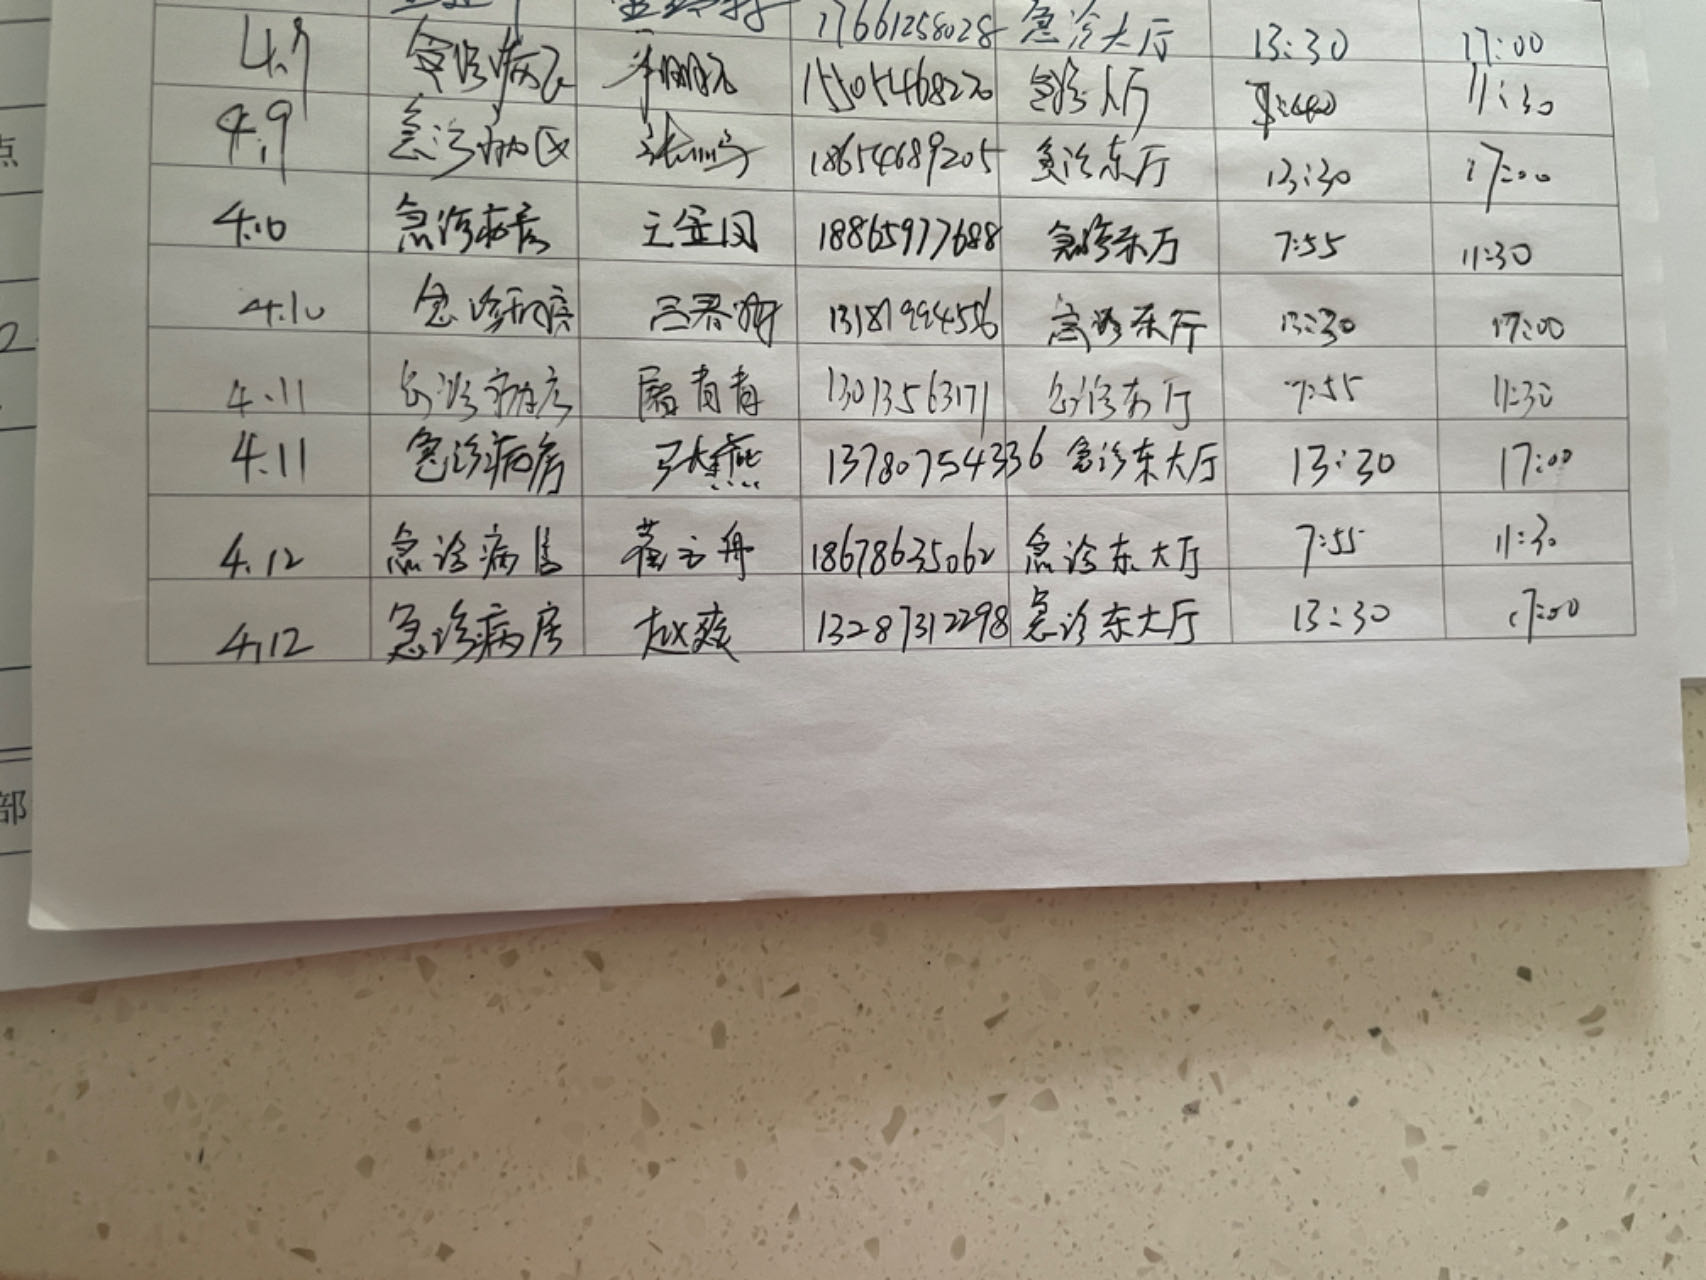 17661258028 急诊大厅 13:30 17:00
4.9 急诊病区 15505468220 急诊大厅 11:30
4.9 急诊病区 张 18654689205 急诊东厅 13:30 17:00
4.10 急诊病房 王金凤 18865977688 急诊东厅 7:55 11:30
4.10 急诊病房 13181994556 急诊东厅 13:30 17:00
4.11 急诊病房 屠青青 13013563171 急诊东厅 7:55 11:30
4.11 急诊病房 张燕 13780754336 急诊东大厅 13:30 17:00
4.12 急诊病房 18678635062 急诊东大厅 7:55 11:30
4.12 急诊病房 赵爽 13287312298 急诊东大厅 13:30 17:00
点
部